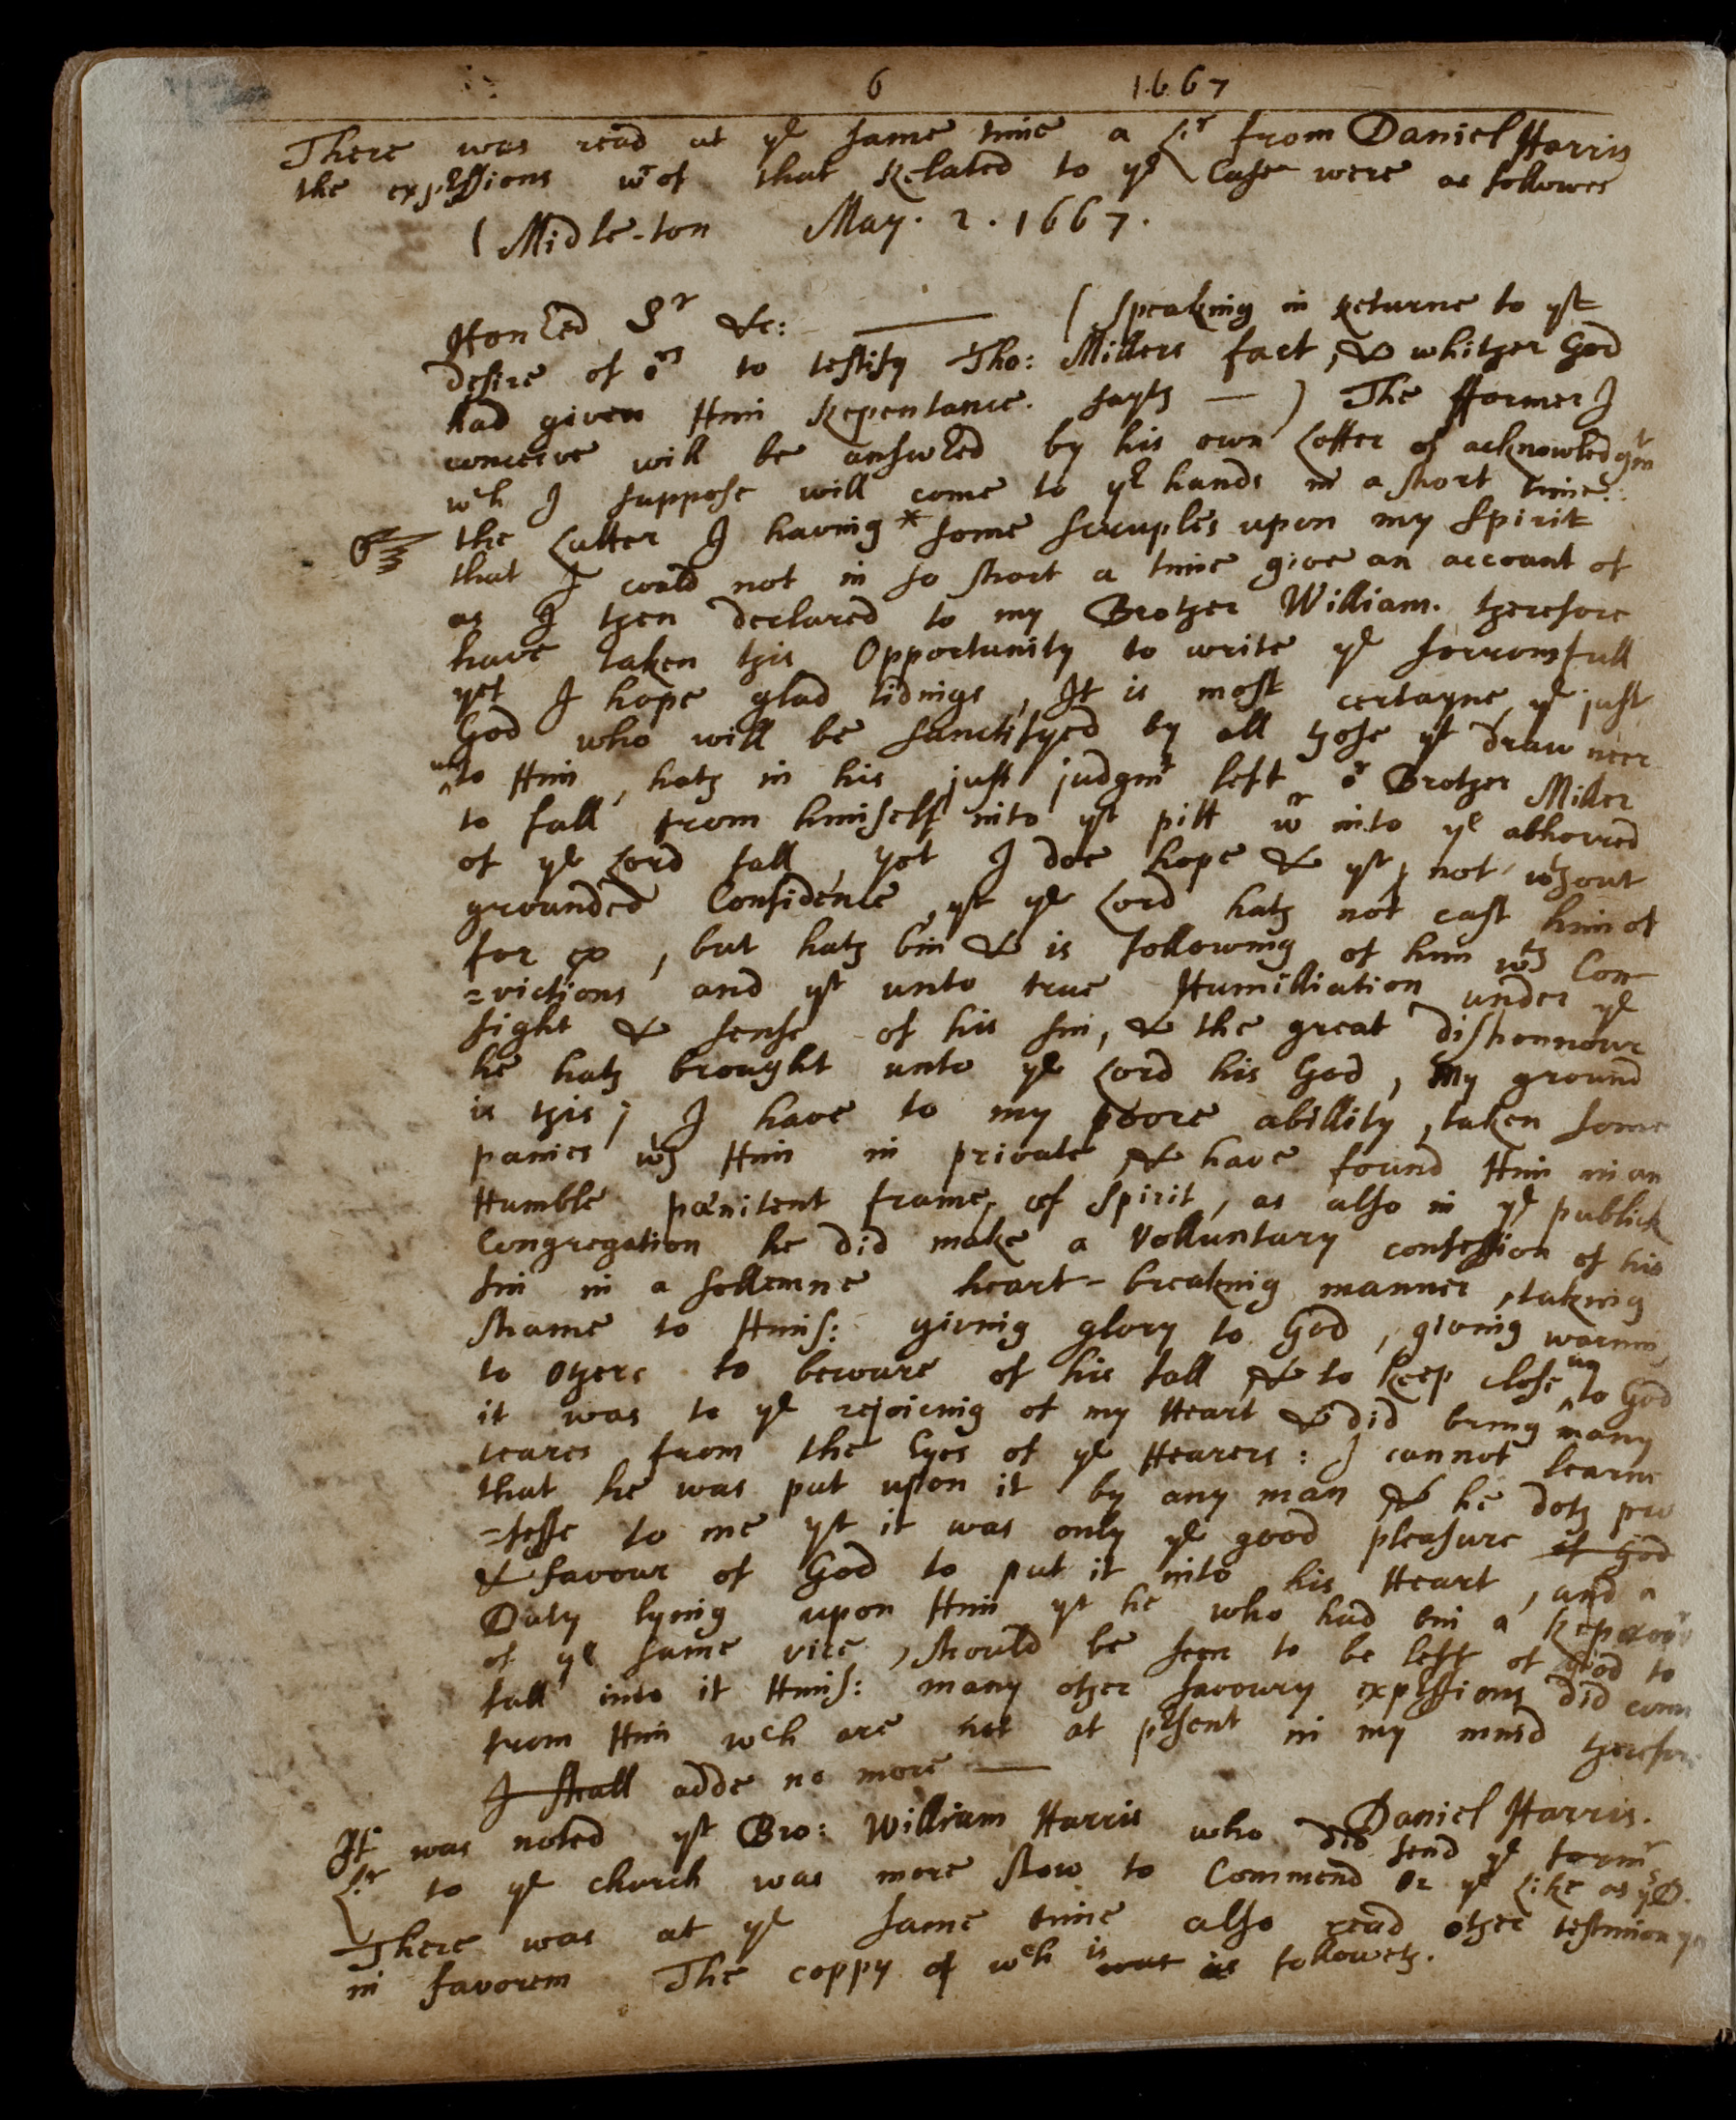 6 1667
There was read at ye same time a Lr from Daniel Harris
the expressions wrof that Related to ye Case were as followes
( Midle-ton May. 2. 1667.
Honred Sr &c: — ( speaking in Returne to yt
desire of ors to testify Tho: Millers fact, & whither God
had given Him Repentance. sayth — ) The fformer I
conceive will be answred by his own Letter of acknowledgmt
wch I suppose will come to yr hands in a short time:
the Latter I having * some scruples upon my spirit
that I could not in so short a time give an account of
as I then declared to my Brother William. therefore
have taken this Opportunity to write ye sorrowfull
yet I hope glad tidings, It is most certayne ye just
God who will be sanctifyed by all those yt draw neer
unto Him, hath in his just judgmt left or Brother Miller
to fall from himself into yt pitt wr into ye abhorred
of ye Lord fall, yet I doe hope & yt not without
grounded Confidence, yt ye Lord hath not cast him of
for ev, but hath bin & is following of him wth Con-
=victions and yt unto true Humilliation under ye
sight & sense of his sin, & the great dishonnour
he hath brought unto ye Lord his God, My ground
is this; I have to my poore abillity, taken some
paines wth Him in private & have found Him in an
Humble pœnitent frame of spirit, as also in ye publick
Congregation he did make a Volluntary confession of his
sin in a sollemne heart-breaking manner, taking
shame to Hims: giving glory to God, giving warning
to others to beware of his fall & to keep close unto God
it was to ye rejoicing of my Heart & did bring many
teares from the Eyes of ye Hearers: I cannot learne
that he was put upon it by any man & he doth pro
=fesse to me yt it was only ye good pleasure of God
& favour of God to put it into his Heart, and a
Duty lying upon Him yt he who had bin a Reprover
of ye same vice, should be seen to be left of God to
fall into it Hims: many other savoury expressions did come
from Him wch are not at present in my mind therefore
I shall adde no more —
Daniel Harris.
It was noted yt Bro: William Harris who did send ye formr
Lr to ye church was more slow to Commend Or ye like as ys D.
There was at ye same time also read other testimonyes
in favorem The coppy of wch is was as followeth.